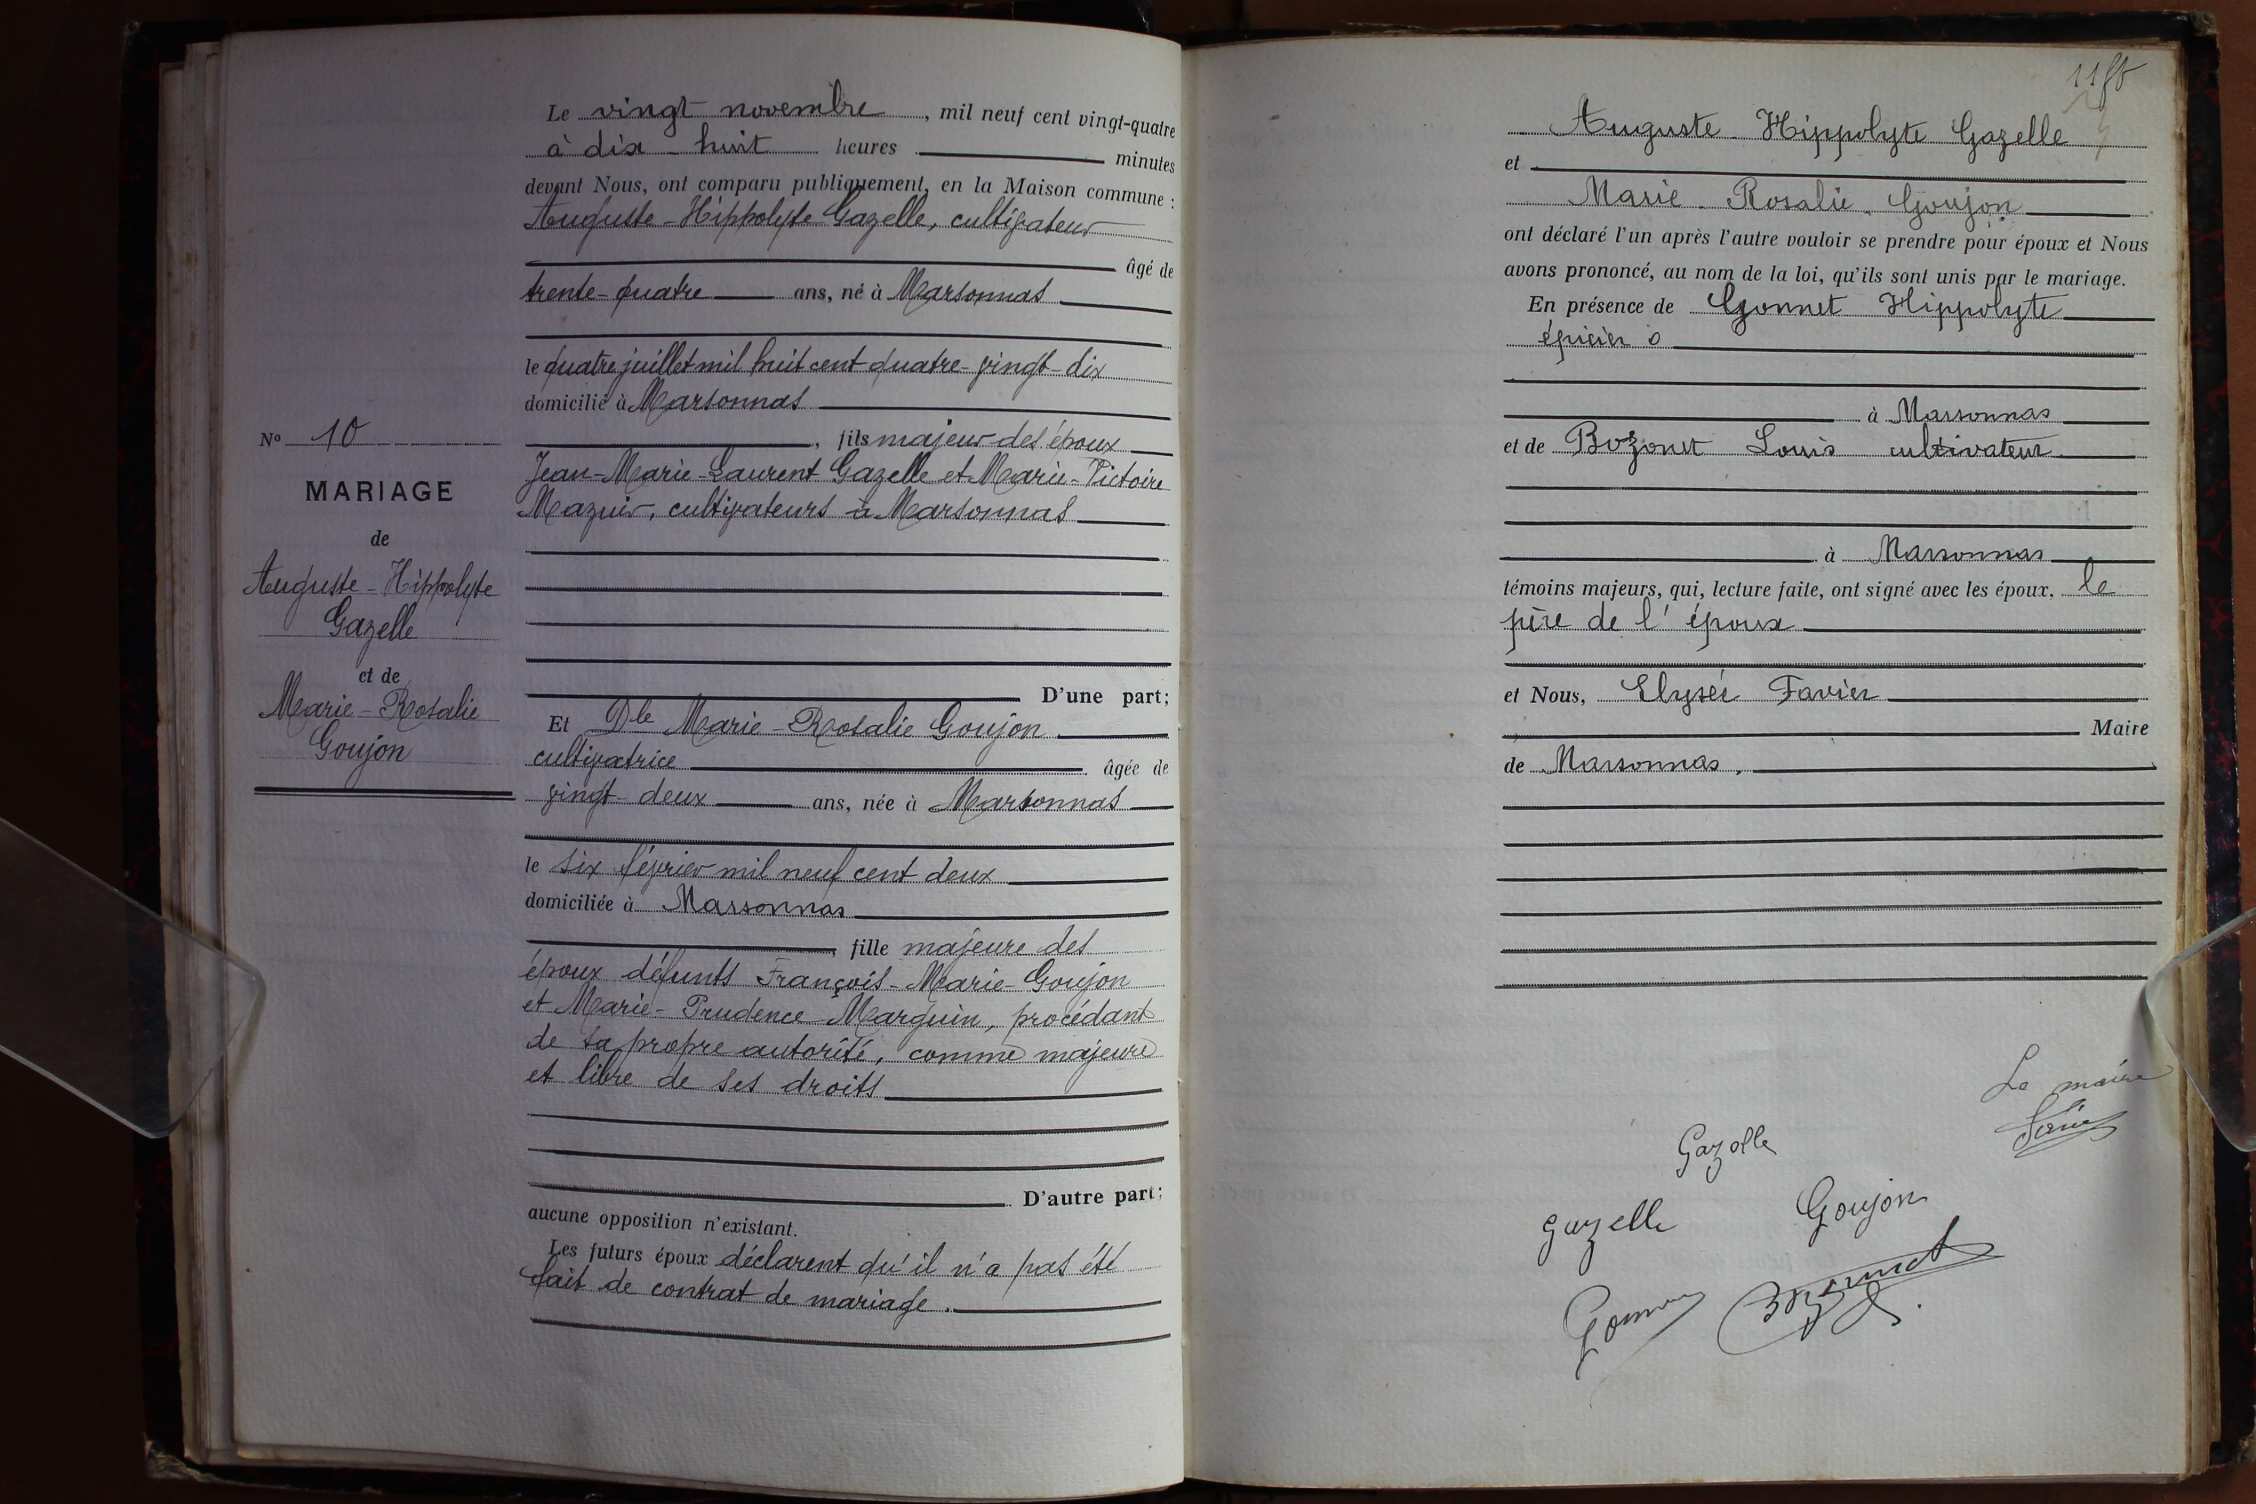 Le vingt novembre, mil neuf cent vingt-quatre
à dix-huit heures minutes
devant Nous, ont comparu publiquement, en la Maison commune :
Auguste-Hippolyte Gazelle, cultivateur
âgé de
trente-quatre ans, né à Marsonnas
le quatre juillet mil huit cent quatre-vingt-dix
domicilié à Marsonnas
, fils majeur des époux
Jean-Marie-Laurent Gazelle et Marie-Victoire
Mazuir, cultivateurs à Marsonnas
D'une part;
Et Dlle Marie-Rosalie Goujon
cultivatrice âgée de
vingt-deux ans, née à Marsonnas
le six février mil neuf cent deux
domiciliée à Marsonnas
, fille majeure des
époux défunts François-Marie-Goujon
et Marie-Prudence Marguin, procédant
de sa propre autorité, comme majeure
et libre de ses droits
D'autre part;
aucune opposition n'existant.
Les futurs époux déclarent qu'il n'a pas été
fait de contrat de mariage.
No 10
MARIAGE
de
Auguste-Hippolyte
Gazelle
et de
Marie-Rosalie
Goujon
Auguste-Hippolyte Gazelle
et
Marie-Rosalie Goujon
ont déclaré l'un après l'autre vouloir se prendre pour époux et Nous
avons prononcé, au nom de la loi, qu'ils sont unis par le mariage.
En présence de Gonnet Hippolyte
épicier
à Marsonnas
et de Bozonet Louis cultivateur
à Marsonnas
témoins majeurs, qui, lecture faite, ont signé avec les époux, le
père de l'époux
et Nous, Elysée Favier
Maire
de Marsonnas.
Le maire
Gazelle
Gazelle Goujon